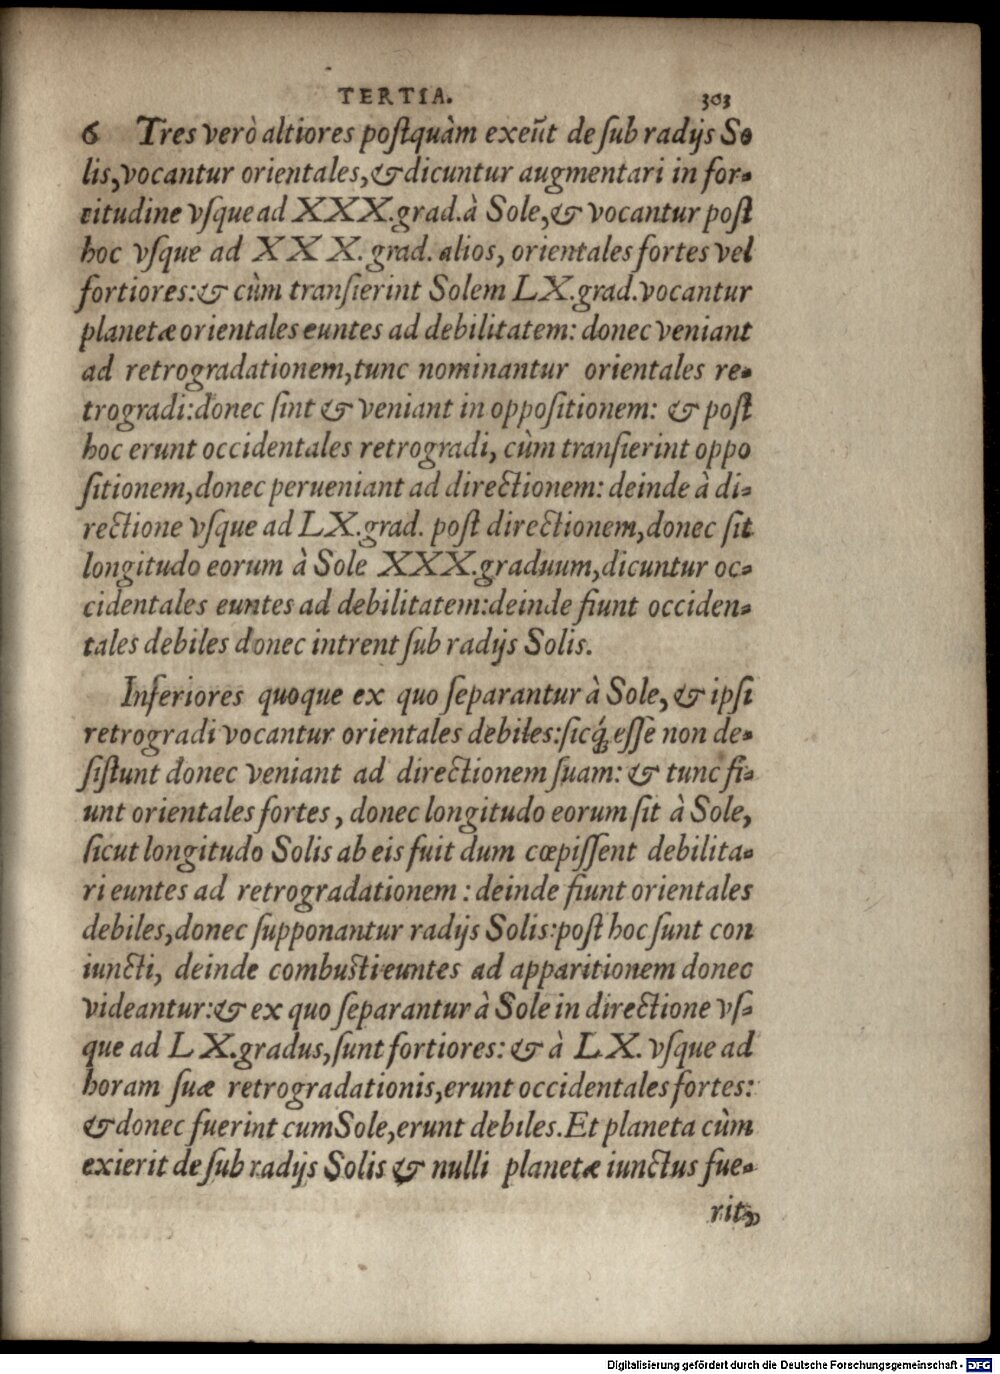 TERTIA. 303
6 Tres verò altiores poſtquàm exeūt de ſub radijs So
lis, vocantur orientales, & dicuntur augmentari in for-
titudine vſque ad XXX. grad. à Sole, & vocantur poſt
hoc vſque ad XXX. grad. alios, orientales fortes vel
fortiores: & cùm tranſierint Solem LX. grad. vocantur
planetæ orientales euntes ad debilitatem: donec veniant
ad retrogradationem, tunc nominantur orientales re-
trogradi: donec ſint & veniant in oppoſitionem: & poſt
hoc erunt occidentales retrogradi, cùm tranſierint oppo
ſitionem, donec perueniant ad directionem: deinde à di-
rectione vſque ad LX. grad. poſt directionem, donec ſit
longitudo eorum à Sole XXX. graduum, dicuntur oc-
cidentales euntes ad debilitatem: deinde fiunt occiden-
tales debiles donec intrent ſub radijs Solis.
Inferiores quoque ex quo ſeparantur à Sole, & ipſi
retrogradi vocantur orientales debiles: ſicq́; eſſe non de-
ſiſtunt donec veniant ad directionem ſuam: & tunc fi-
unt orientales fortes, donec longitudo eorum ſit à Sole,
ſicut longitudo Solis ab eis fuit dum cœpiſſent debilita-
ri euntes ad retrogradationem: deinde fiunt orientales
debiles, donec ſupponantur radijs Solis: poſt hoc ſunt con
iuncti, deinde combusti euntes ad apparitionem donec
videantur: & ex quo ſeparantur à Sole in directione vſ-
que ad LX. gradus, ſunt fortiores: & à LX. vſque ad
horam ſuæ retrogradationis, erunt occidentales fortes:
& donec fuerint cum Sole, erunt debiles. Et planeta cùm
exierit de ſub radijs Solis & nulli planetæ iunctus fue-
rit,
Digitalisierung gefördert durch die Deutsche Forschungsgemeinschaft - DFG